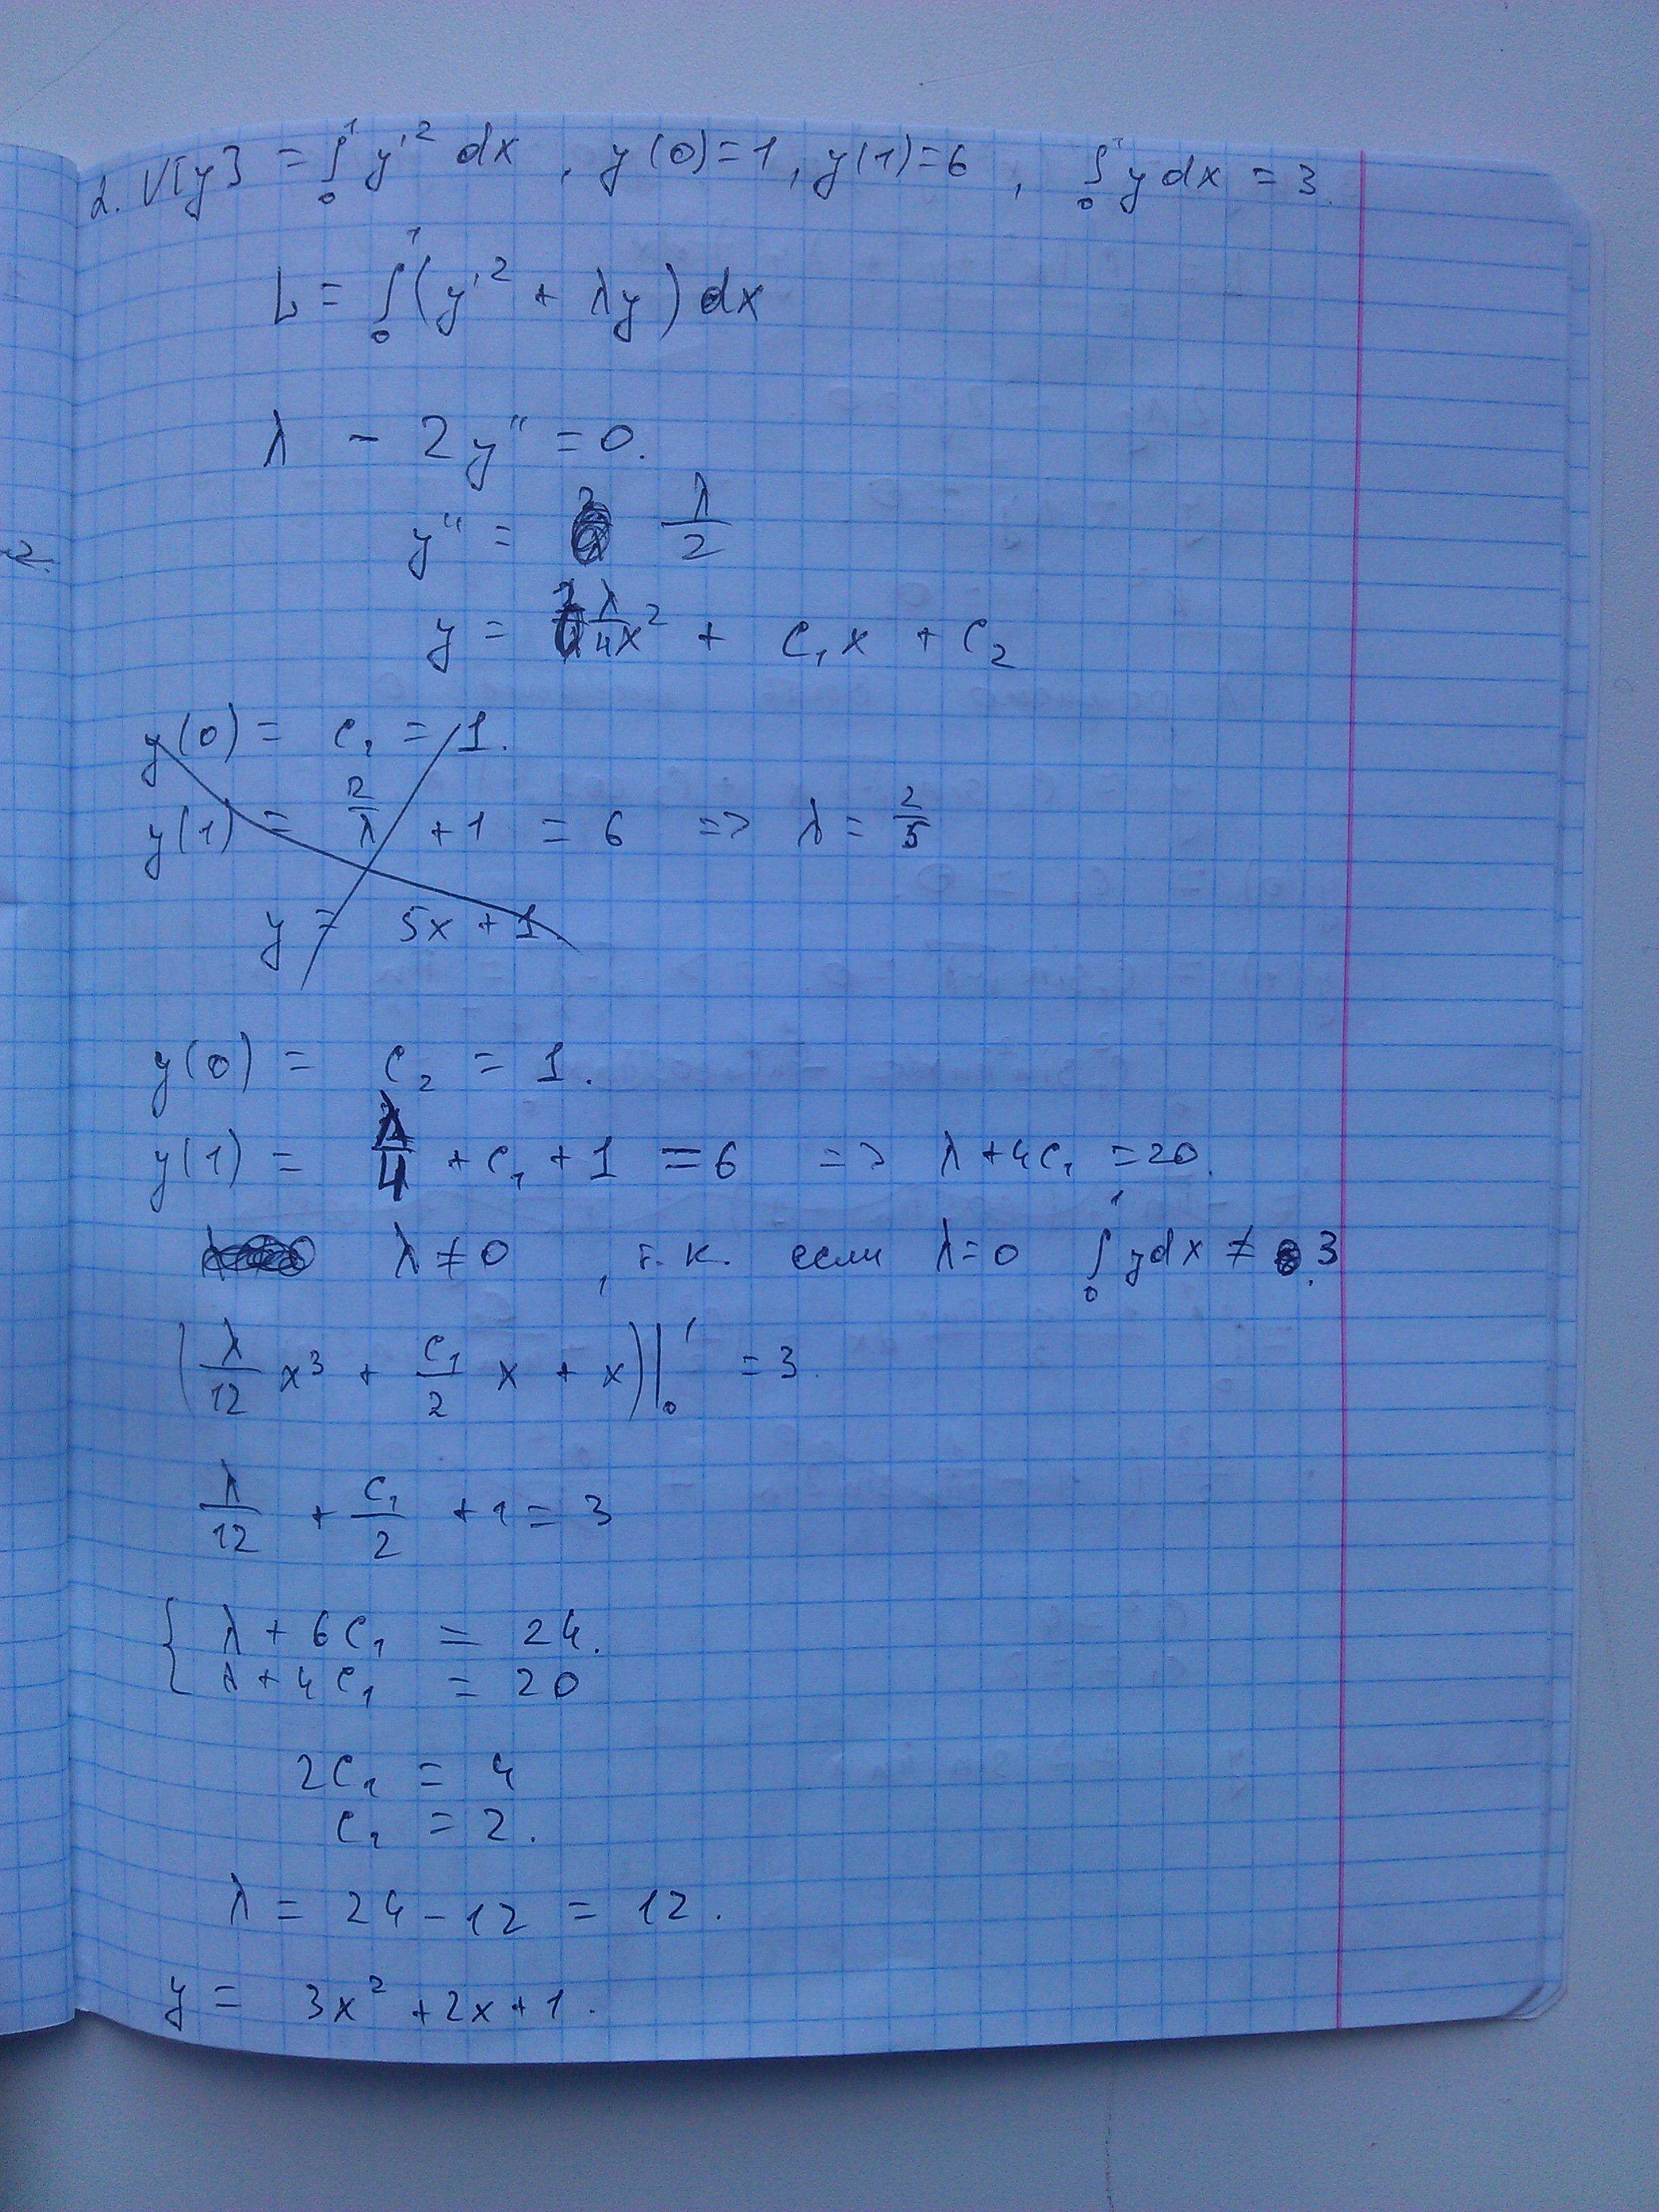 2. V[y] = ∫₀¹ y'² dx , y(0)=1, y(1)=6 , ∫₀¹ y dx = 3.
L = ∫₀¹ (y'² + λy) dx
λ - 2y'' = 0.
y'' = λ/2
y = λ/4 x² + C₁x + C₂
y(0) = C₁ = 1.
y(1) = 2/λ + 1 = 6 => λ = 2/5
y = 5x + 1.
y(0) = C₂ = 1.
y(1) = λ/4 + C₁ + 1 = 6 => λ + 4C₁ = 20.
λ ≠ 0 , т.к. если λ = 0 ∫₀¹ y dx ≠ 3.
(λ/12 x³ + C₁/2 x + x)|₀¹ = 3.
λ/12 + C₁/2 + 1 = 3
{ λ + 6C₁ = 24.
λ + 4C₁ = 20
2C₁ = 4
C₁ = 2.
λ = 24 - 12 = 12.
y = 3x² + 2x + 1.